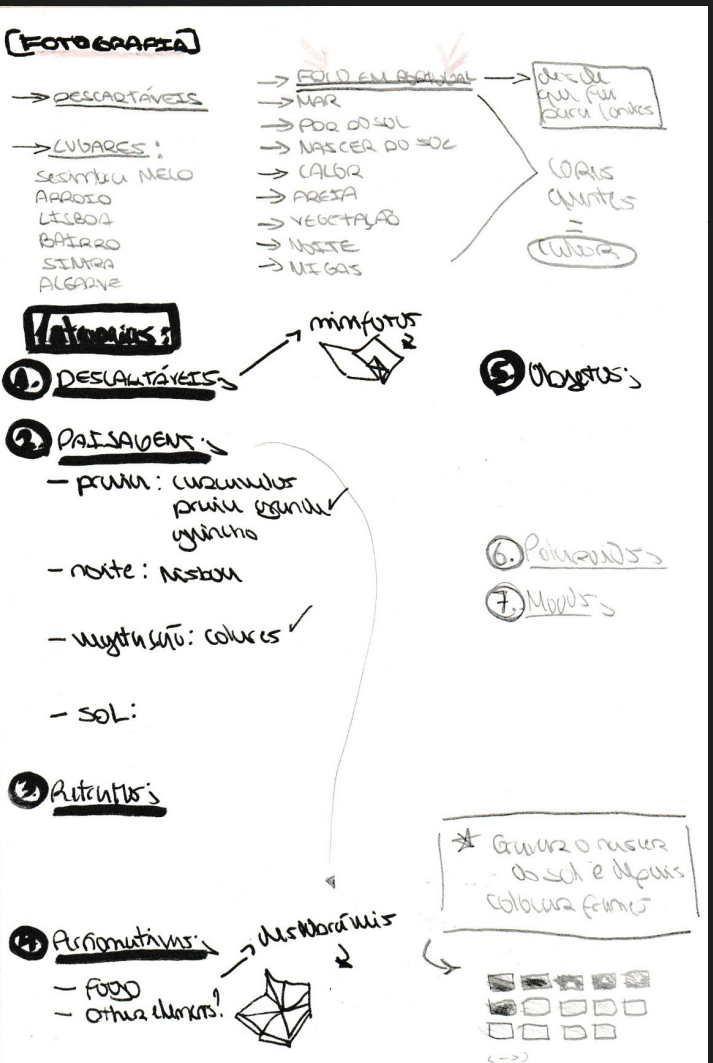 [FOTOGRAFIA]
→ DESCARTÁVEIS
→ LUGARES:
Sesimbra MELO
ARROIO
LISBOA
BAIRRO
SINTRA
ALGARVE
→ FOCO EM PORTUGAL → desde que fui para Londres
→ MAR
→ POR DO SOL
→ NASCER DO SOL
→ CALOR
→ AREIA
→ VEGETAÇÃO
→ NOITE
→ MIGAS
cores
quentes
=
calor
1. DESCARTÁVEIS: → minifotos
2. PAISAGENS:
- praia:
praia grande ✓
guincho
- noite: Lisboa
- vegetação: colares ✓
- SOL:
3. Retratos:
4. Performativas: →
- FOGO
- other elements?
5. Objetos:
6. Polaroids:
7. Moods:
★ Gravar o nascer
do sol e depois
colocar frames